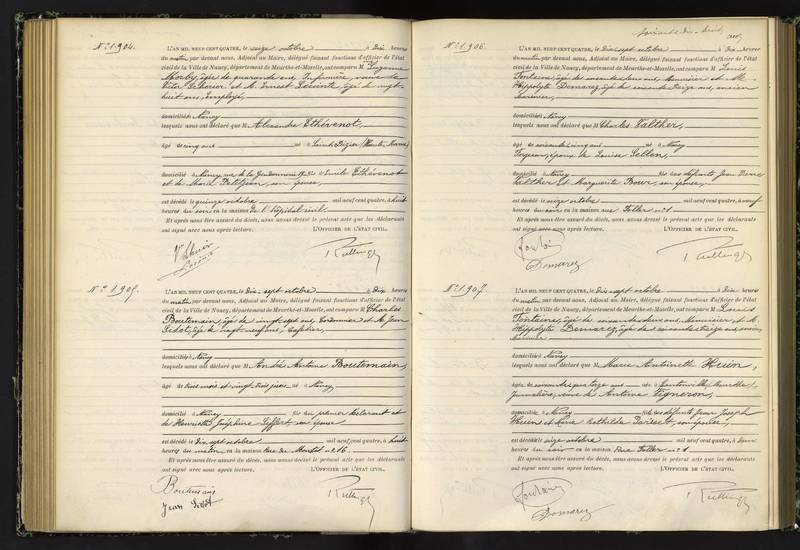 N° 1.904.
L'AN MIL NEUF CENT QUATRE, le seize octobre à Dix heures
du matin, par devant nous, Adjoint au Maire, délégué faisant fonctions d'officier de l'état
civil de la Ville de Nancy, département de Meurthe-et-Moselle, ont comparu M Suzanne
âgée de quarante ans, Infirmière, veuve de
Victor et M. Ernest âgé de vingt
huit ans, Employé,
domiciliés à Nancy
lesquels nous ont déclaré que M Alexandre Thévenot,
âgé de cinq ans né à Saint-Dizier (Haute-Marne)
domicilié à Nancy rue de la fils de Emile Thévenot
et de Maria son épouse,
est décédé le quinze octobre mil neuf cent quatre, à huit
heures du soir en la maison de l'hôpital civil.
Et après nous être assuré du décès, nous avons dressé le présent acte que les déclarants
ont signé avec nous après lecture. L'OFFICIER DE L'ÉTAT CIVIL.
N° 1.905.
L'AN MIL NEUF CENT QUATRE, le Dix-sept octobre à Dix heures
du matin, par devant nous, Adjoint au Maire, délégué faisant fonctions d'officier de l'état
civil de la Ville de Nancy, département de Meurthe-et-Moselle, ont comparu M Charles
Boutemain, âgé de vingt sept ans, Cordonnier et M. Jean
Sidot, âgé de vingt neuf ans, Cafetier,
domiciliés à Nancy
lesquels nous ont déclaré que M Andrée Antoine Boutemain,
âgé de trois mois et vingt trois jours né à Nancy,
domicilié à Nancy fils du premier déclarant et
de Henriette Joséphine son épouse,
est décédé le dix sept octobre mil neuf cent quatre, à huit
heures du matin en la maison Rue de n° 16
Et après nous être assuré du décès, nous avons dressé le présent acte que les déclarants
ont signé avec nous après lecture. L'OFFICIER DE L'ÉTAT CIVIL.
Boutemain
Jean Sidot
soixante dix-huit
N° 1.906.
L'AN MIL NEUF CENT QUATRE, le Dix sept octobre à Dix heures
du matin, par devant nous, Adjoint au Maire, délégué faisant fonctions d'officier de l'état
civil de la Ville de Nancy, département de Meurthe-et-Moselle, ont comparu M Louis
Fontaine, âgé de soixante deux ans, Menuisier et M.
Hippolyte Demarez, âgé de soixante treize ans, ancien
domiciliés à Nancy
lesquels nous ont déclaré que M Charles Valther,
âgé de soixante cinq ans né à Nancy
époux de Louise
domicilié à Nancy fils des défunts Jean Pierre
Valther et Marguerite son épouse,
est décédé le seize octobre mil neuf cent quatre, à neuf
heures du soir en la maison rue Feller n° 1
Et après nous être assuré du décès, nous avons dressé le présent acte que les déclarants
ont signé avec nous après lecture. L'OFFICIER DE L'ÉTAT CIVIL.
Demarez
N° 1.907.
L'AN MIL NEUF CENT QUATRE, le Dix-sept octobre à Dix heures
du matin, par devant nous, Adjoint au Maire, délégué faisant fonctions d'officier de l'état
civil de la Ville de Nancy, département de Meurthe-et-Moselle, ont comparu M Louis
Fontaine, âgé de soixante deux ans, Menuisier, et M.
Hippolyte Demarez, âgé de soixante treize ans, ancien
domiciliés à Nancy
lesquels nous ont déclaré que M Marie Antoinette Huin,
âgée de soixante quatorze ans née à (Meurthe),
Journalière, veuve de Antoine Vigneron,
domiciliée à Nancy fille des défunts Jean Joseph
Huin et Anne Mathilde son épouse,
est décédée le seize octobre mil neuf cent quatre, à
heures du soir en la maison Rue Feller n° 1
Et après nous être assuré du décès, nous avons dressé le présent acte que les déclarants
ont signé avec nous après lecture. L'OFFICIER DE L'ÉTAT CIVIL.
Fontaine
Demarez